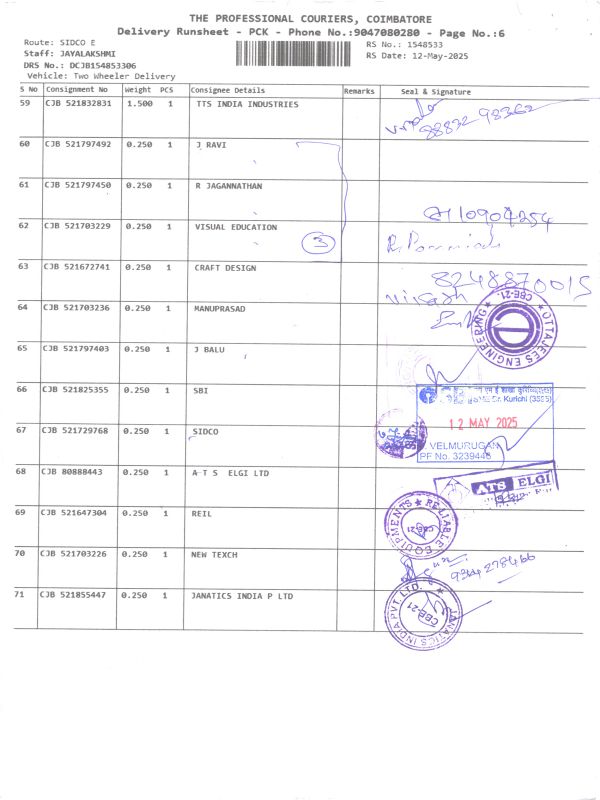 THE PROFESSIONAL COURIERS, COIMBATORE
Delivery Runsheet - PCK - Phone No.:9047080280 - Page No.:6
Route: SIDCO E
RS No.: 1548533
Staff: JAYALAKSHMI
RS Date: 12-May-2025
DRS No.: DCJB154853306
Vehicle: Two Wheeler Delivery
S No Consignment No Weight PCS Consignee Details Remarks Seal & Signature
59 CJB 521832831 1.500 1 TTS INDIA INDUSTRIES
88832 98362
60 CJB 521797492 0.250 1 J RAVI
61 CJB 521797450 0.250 1 R JAGANNATHAN
62 CJB 521703229 0.250 1 VISUAL EDUCATION
3
63 CJB 521672741 0.250 1 CRAFT DESIGN
8248870015
64 CJB 521703236 0.250 1 MANUPRASAD
OTTAJEES ENGINEERING CBE-21
65 CJB 521797403 0.250 1 J BALU
66 CJB 521825355 0.250 1 SBI
Kurichi (3555)
12 MAY 2025
67 CJB 521729768 0.250 1 SIDCO
VELMURUGAN
PF No. 3239446
68 CJB 80888443 0.250 1 A T S ELGI LTD
ATS ELGI
69 CJB 521647304 0.250 1 REIL
RELIABLE EQUIPMENTS CBE-21
70 CJB 521703226 0.250 1 NEW TEXCH
71 CJB 521855447 0.250 1 JANATICS INDIA P LTD
JANATICS INDIA PVT. LTD. CBE-21